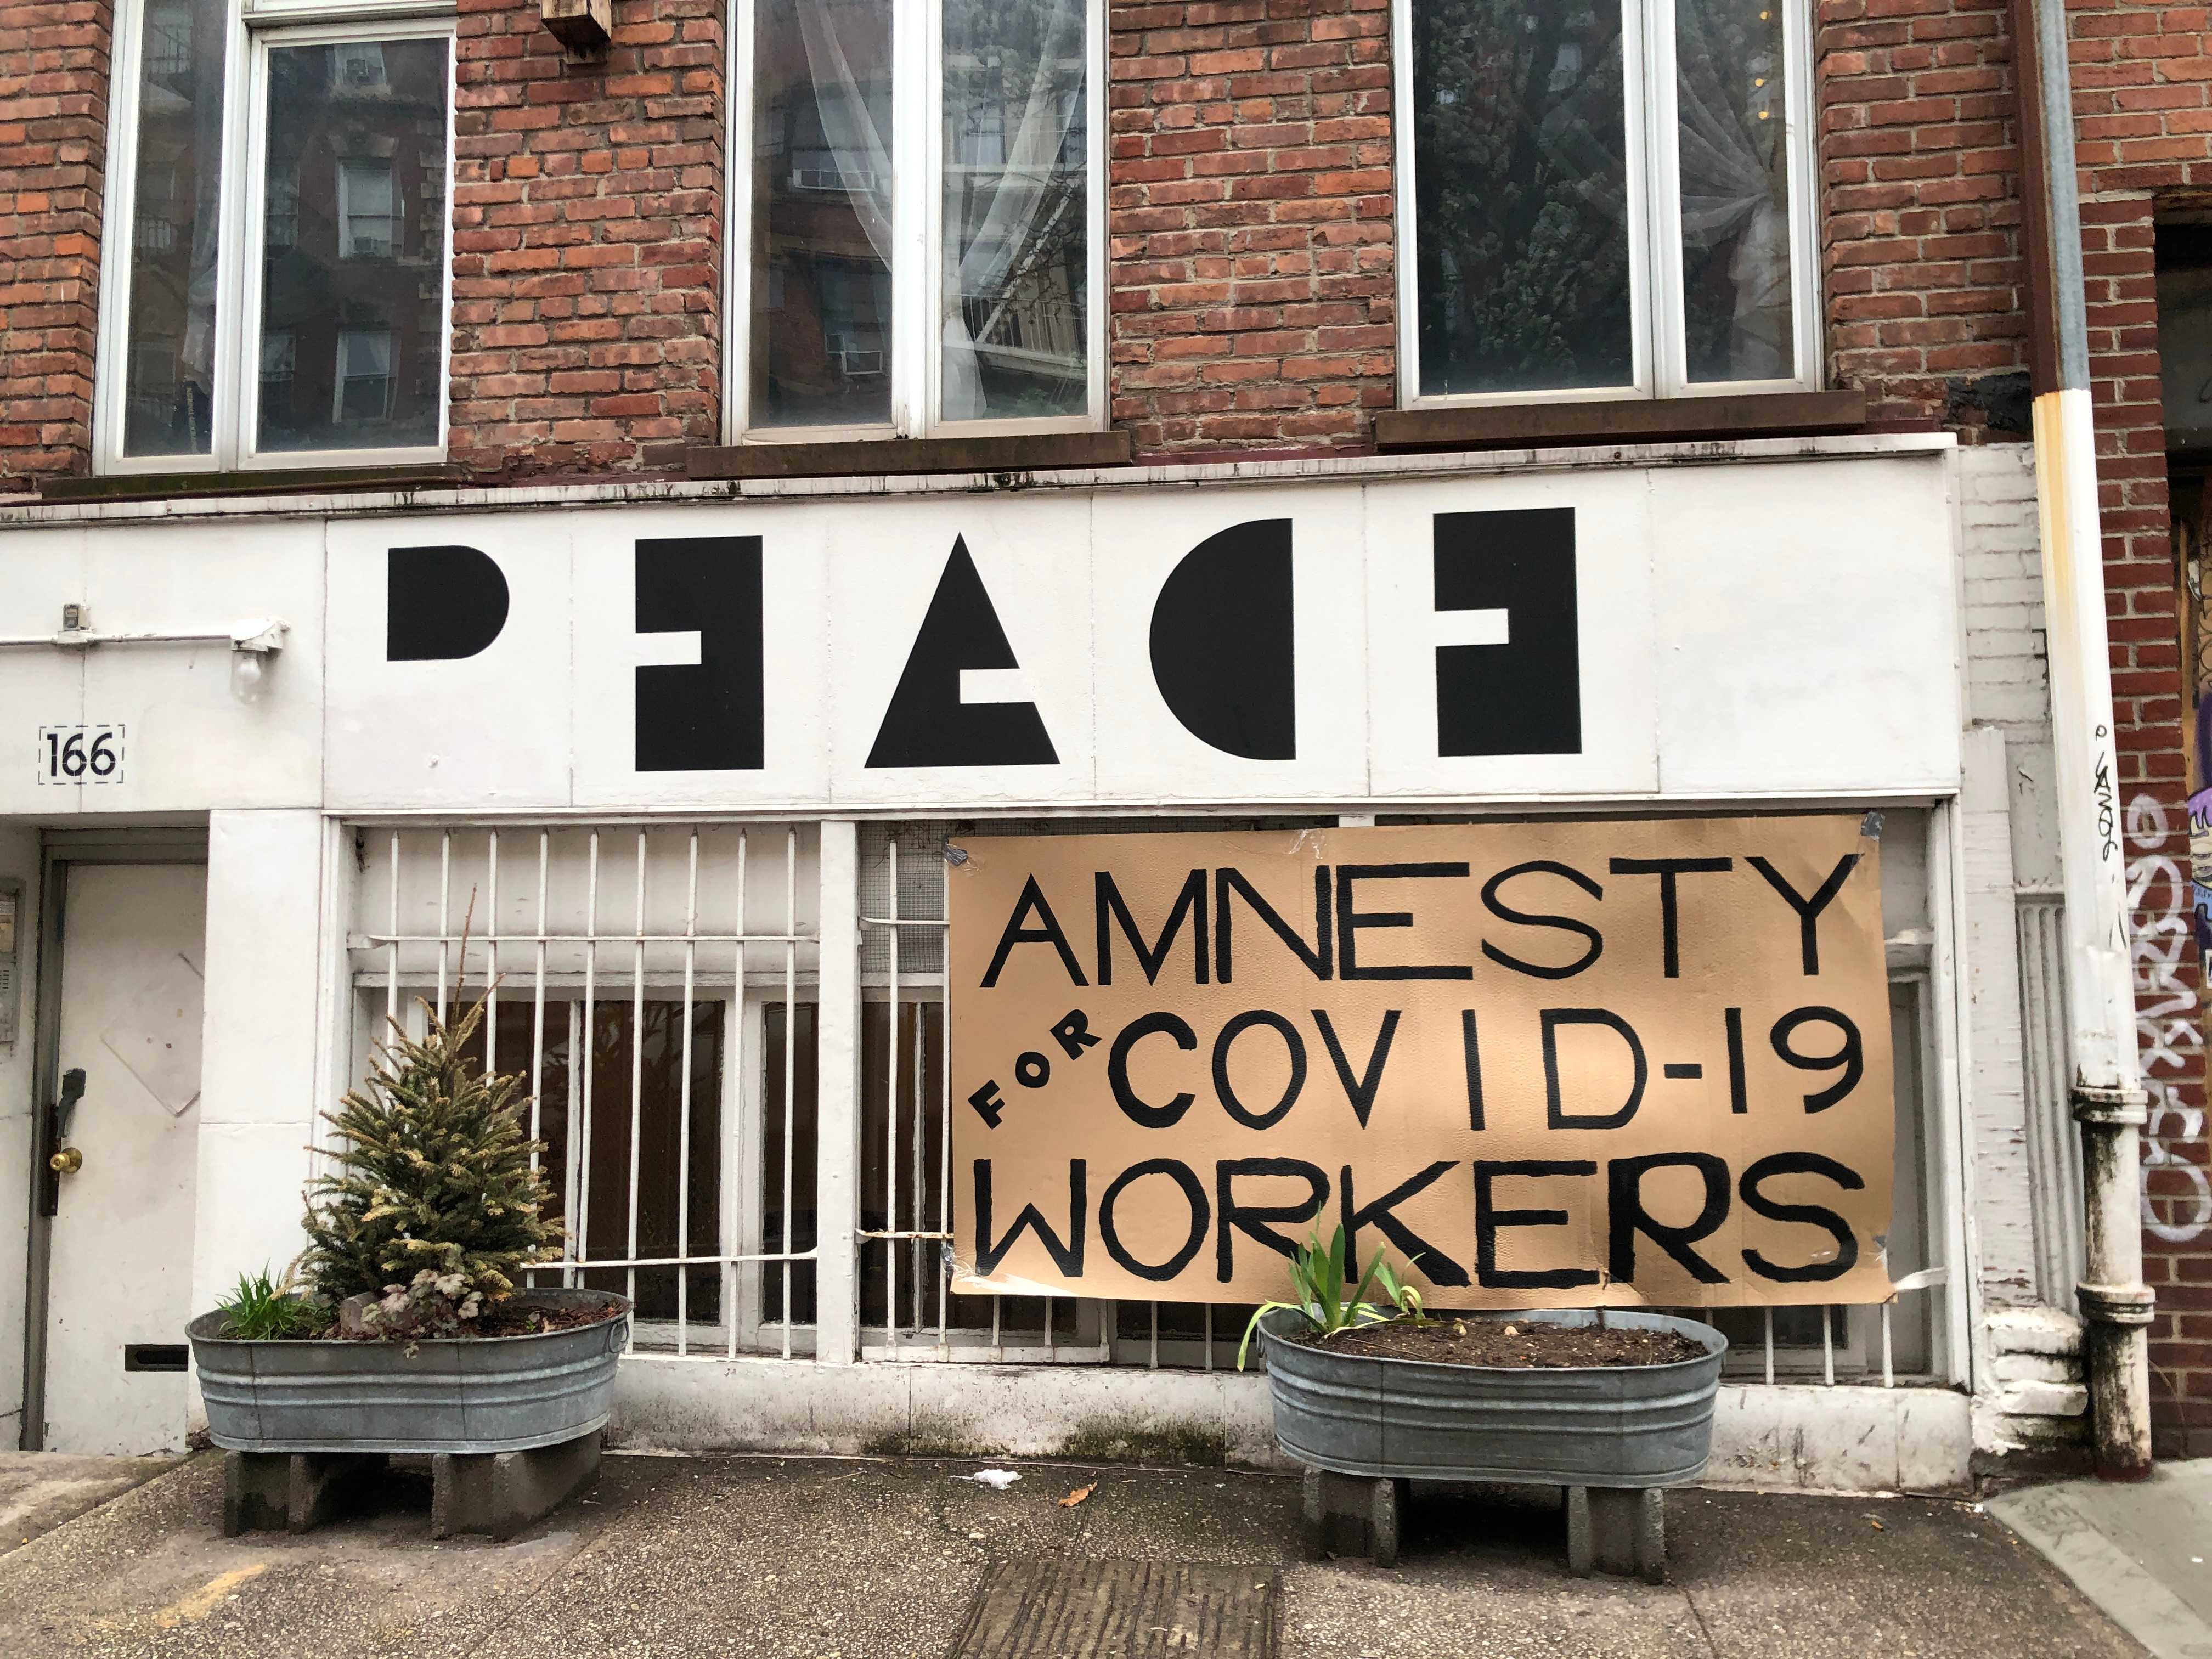 PEACE
166
AMNESTY
FOR COVID-19
WORKERS